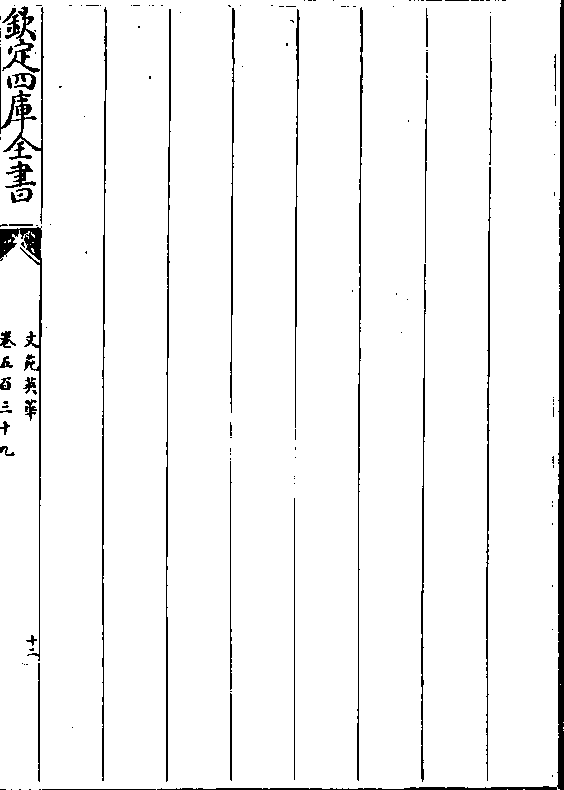 欽定四庫全書
文苑英華
卷五百三十九
十二